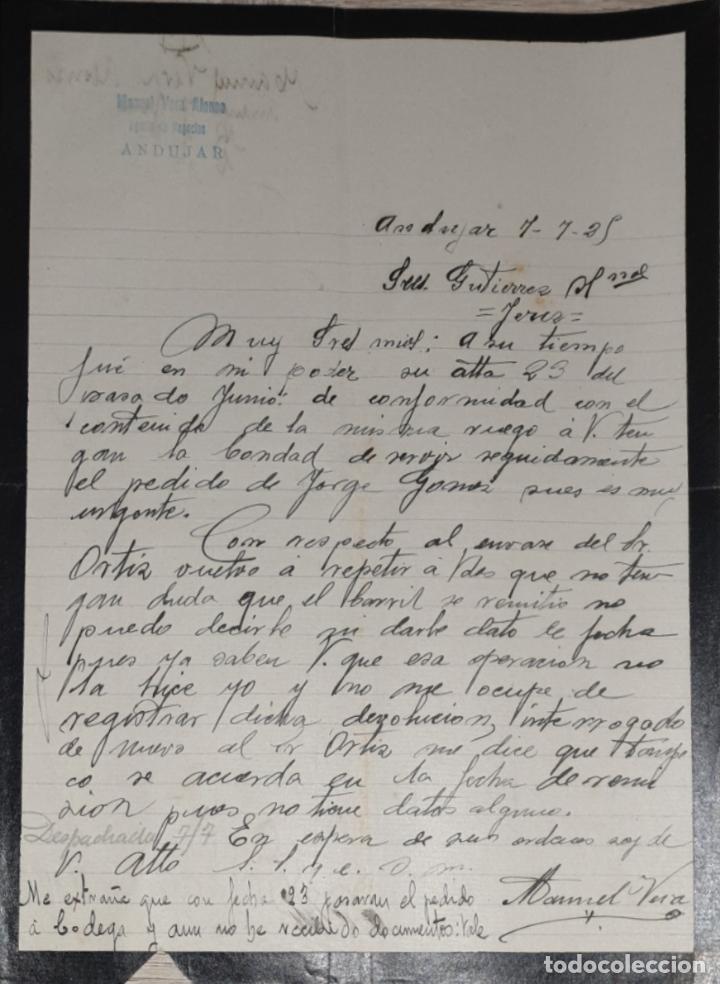 Manuel Vera Alonso
Agente de Negocios
ANDUJAR
Andujar 7-7-25
Sres. Gutierrez Hnos
=Jerez=
Muy Sres mios: A su tiempo
fué en mi poder su atta 23 del
pasado Junio: de conformidad con el
contenido de la misma ruego á V. ten
gan la bondad de servir seguidamente
el pedido de Jorge Gomez pues es muy
urgente.
Con respecto al envase del Sr.
Ortiz vuelvo á repetir á Vdes que no ten-
gan duda que el barril se remitio no
puedo decirle ni darle dato le fecha
pues ya saben V. que esa operacion no
la hice yo y no me ocupe de
registrar dicha devolucion, interrogado
de nuevo al Sr Ortiz me dice que tampo
co se acuerda en la fecha de remi
sion pues no tiene datos alguno.
Despachado 7/7 En espera de sus ordenes soy de
V. Atto S. S. q. e. s. m.
Manuel Vera
Me extraña que con fecha 23 pasaran el pedido
á bodega y aun no he recibido documentos: Vale
todocoleccion.net